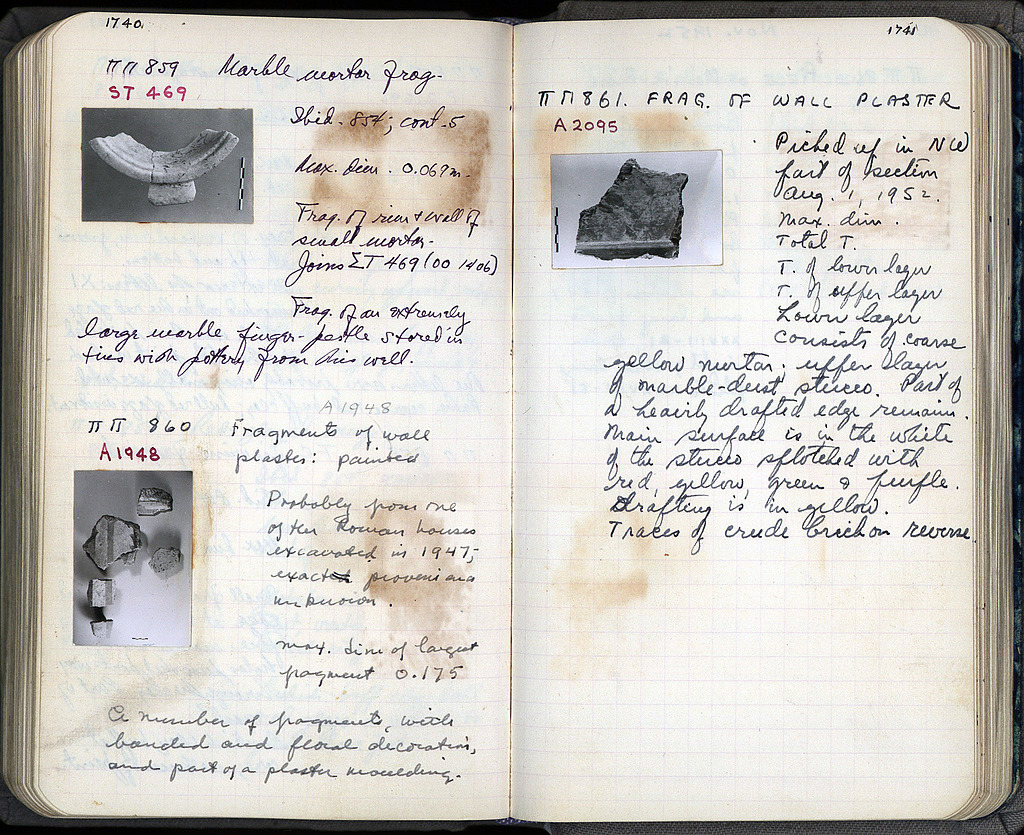 1740.
ΠΠ 859 Marble mortar frag.
ST 469
Ibid. 854; cont. 5
Max. dim. 0.069m.
Frag. of rim & wall of
small mortar.
Joins ΣT 469 (OO 1406)
Frag. of an extremely
large marble finger-pestle stored in
tins with pottery from this well.
A1948
ΠΠ 860 Fragments of wall
A1948 plaster: painted
Probably from one
of the Roman houses
excavated in 1947;
exact provenance
unknown.
max. dim of largest
fragment 0.175
A number of fragments, with
banded and floral decoration,
and part of a plaster moulding.
1741
ΠΠ 861. FRAG. OF WALL PLASTER
A 2095
Picked up in NW
part of section
Aug. 1, 1952.
Max. dim.
Total T.
T. of lower layer
T. of upper layer
Lower layer
consists of coarse
yellow mortar. upper layer
of marble-dust stucco. Part of
a heavily drafted edge remains.
Main surface is in the white
of the stucco splotched with
red, yellow, green & purple.
Drafting is in yellow.
Traces of crude brick on reverse.